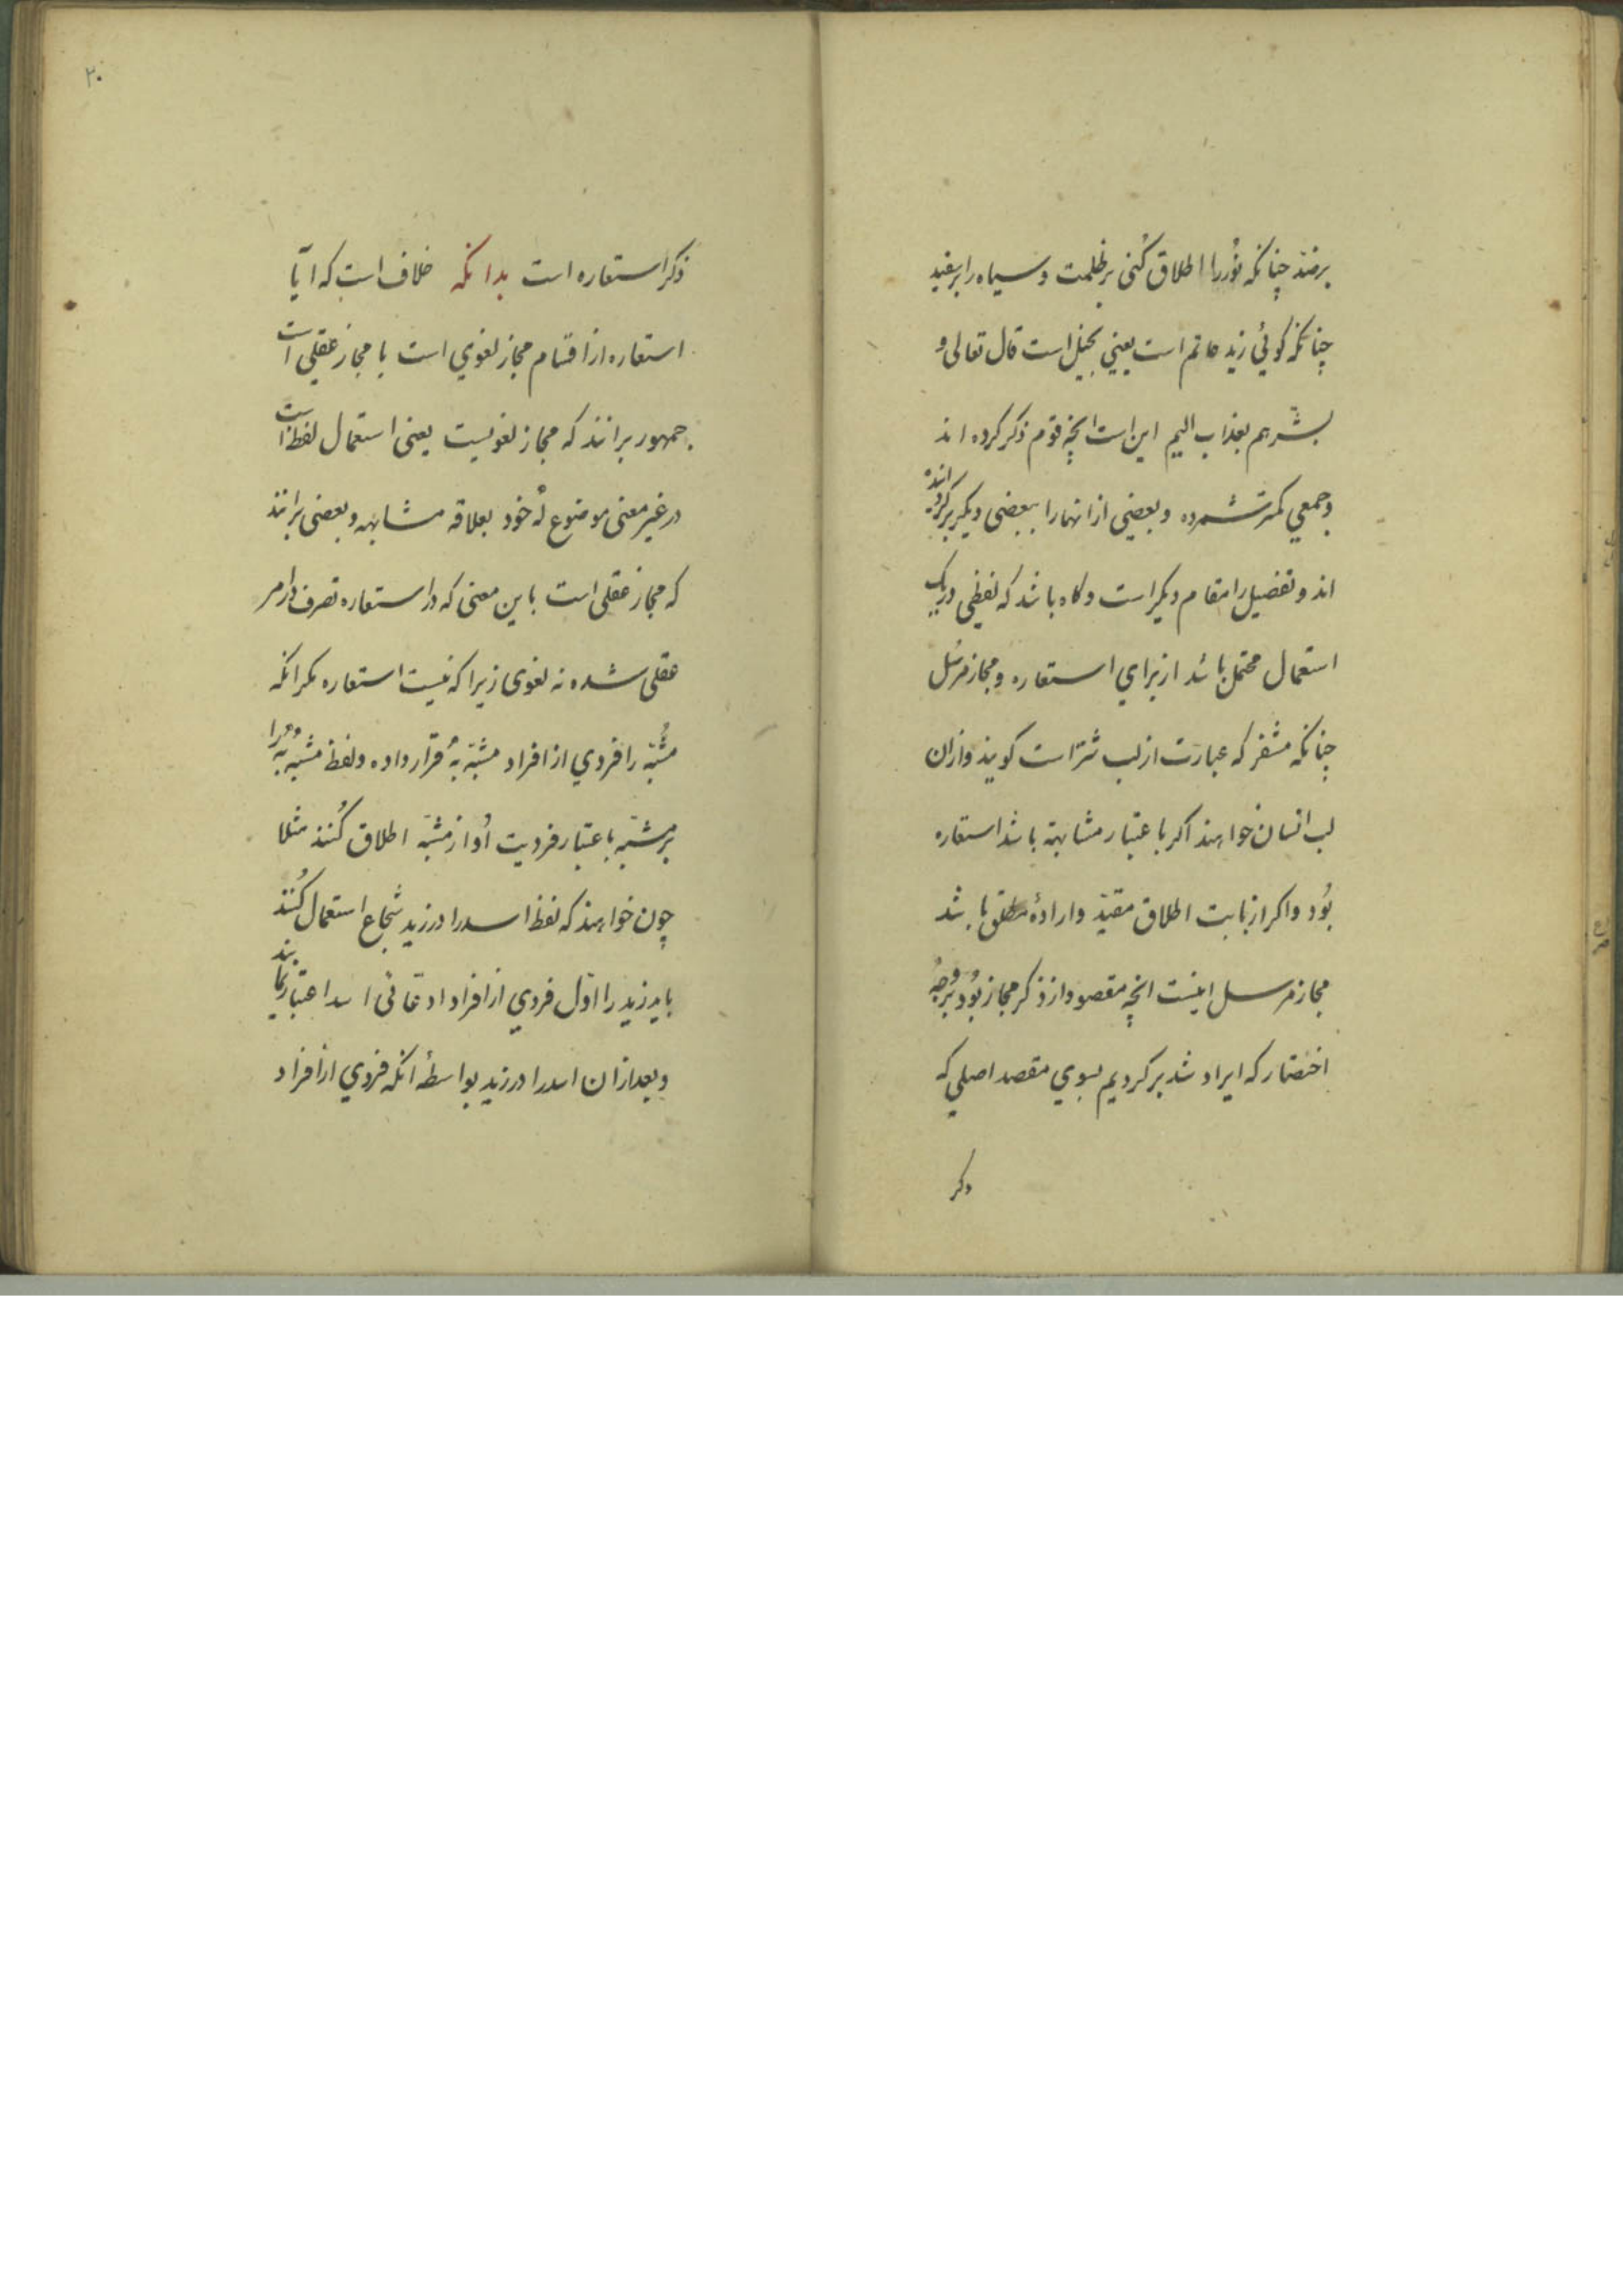 برضد چنانکه نُور را اطلاق کُنی بر ظلمت و سیاه را بر سفید
چنانکه کوئی زید حاتم است یعنی بخیل است قال تعالی و
بشّرهم بعذاب الیم این است انچه قوم ذکر کرده اند
و جمعی کمتر شمرده و بعضی از انها را ببعضی دیکر بر کردانیده
اند و تفصیل را مقام دیکر است و کاه باشد که لفظی در یک
استعمال محتمل باشد از برای استعاره و مجاز مرسل
چنانکه مشفر که عبارت از لب شتر است کویند و ازان
لب انسان خواهند اکر باعتبار مشابهة باشد استعاره
بُود و اکر از بابت اطلاق مقیّد و ارادهٔ مطلق باشد
مجاز مرسل اینست انچه مقصود از ذکر مجاز بُود بر وجهُ
اختصار که ایراد شد بر کردیم بسوی مقصد اصلی که
ذکر
۲۰
ذکر استعاره است بدانکه خلاف است که ایا
استعاره از اقسام مجاز لغوی است یا مجاز عقلی است
جمهور برانند که مجاز لغویست یعنی استعمال لفظ است
در غیر معنی موضوع لهُ خود بعلاقه مشابهه و بعضی برانند
که مجاز عقلی است باین معنی که در استعاره تصرف در امر
عقلی شده نه لغوی زیرا که نیست استعاره مکر انکه
مُشبّه را فردی از افراد مشبّه بهُ قرار داده و لفظ مشبّه بهُ را
بر مشبّه باعتبار فردیت اُو از مشبّه اطلاق کُنند مثلا
چون خواهند که لفظ اسد را در زید شجاع استعمال کُنند
باید زید را اوّل فردی از افراد ادّعائی اسد اعتبار نمایند
و بعد ازان اسد را در زید بواسطهٔ انکه فردی از افراد